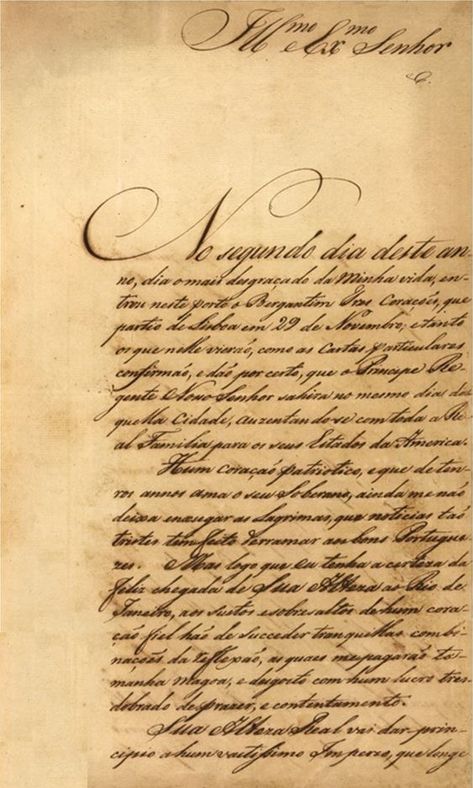 Ill.mo e Ex.mo Senhor
No segundo dia deste an-
no, dia o mais desgraçado da Minha vida, en-
trou neste porto o Bergantim Tres Corações, que
partio de Lisboa em 29 de Novembro, e tanto
os que nelle vieraõ, como as Cartas particulares
confirmaõ, e daõ por certo, que o Principe Re-
gente Nosso Senhor sahira no mesmo dia da
quella Cidade, auzentando-se com toda a Re-
al Familia para os seus Estados da America.
Hum coraçaõ patriotico, e que de ten-
ros annos ama o seu Soberano, ainda me naõ
deixa enxugar as Lagrimas, que noticias taõ
tristes tem feito derramar aos bons Portugue-
zes. Mas logo que eu tenha a certeza da
feliz chegada de Sua Alteza ao Rio de
Janeiro, aos sustos e sobresaltos de hum cora-
çaõ fiel haõ de succeder tranquillas combi-
nações da reflexaõ, as quaes me pagaraõ ta-
manha magoa, e desgosto com hum lucro tres-
dobrado de prazer, e contentamento.
Sua Alteza Real vai dar prin-
cipio a hum vastissimo Imperio, que longe